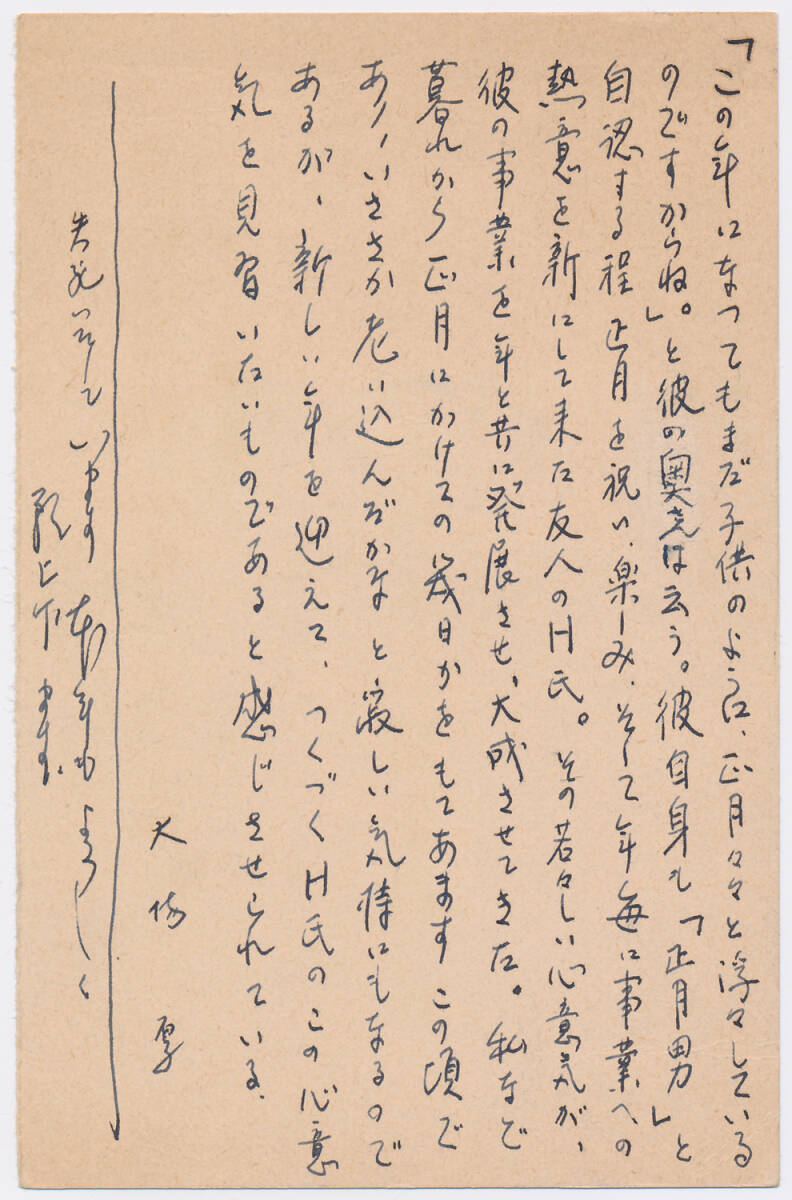 「この年になってもまだ子供のように、正月々々と浮々している
のですからね。」と彼の奥さんは云う。彼自身も「正月男」と
自認する程正月を祝い、楽しみ、そして年毎に事業への
熱意を新にして来た友人のH氏。その若々しい心意気が、
彼の事業を年と共に発展させ、大成させてきた。私など
暮れから正月にかけての幾日かをもてあます この頃で
あり、いささか老い込んだかなと寂しい気持にもなるので
あるが、新しい年を迎えて、つくづくH氏のこの心意
気を見習いたいものであると感じさせられている。
大 厚
失礼して います 本年もよろしく
願上げます